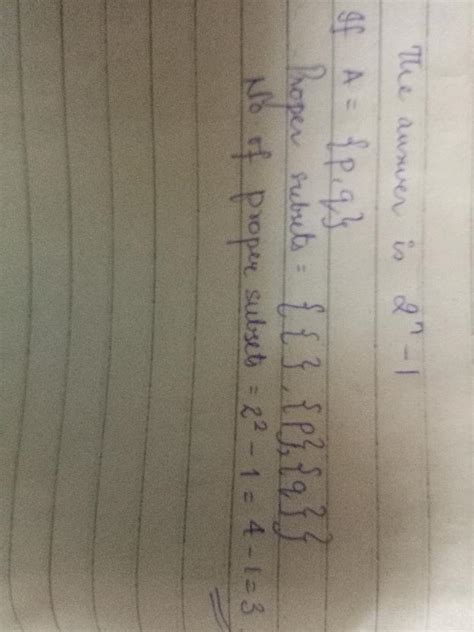 The answer is 2ⁿ - 1
If A = {p, q}
Proper subsets = { { }, {p}, {q} }
No of proper subsets = 2² - 1 = 4 - 1 = 3